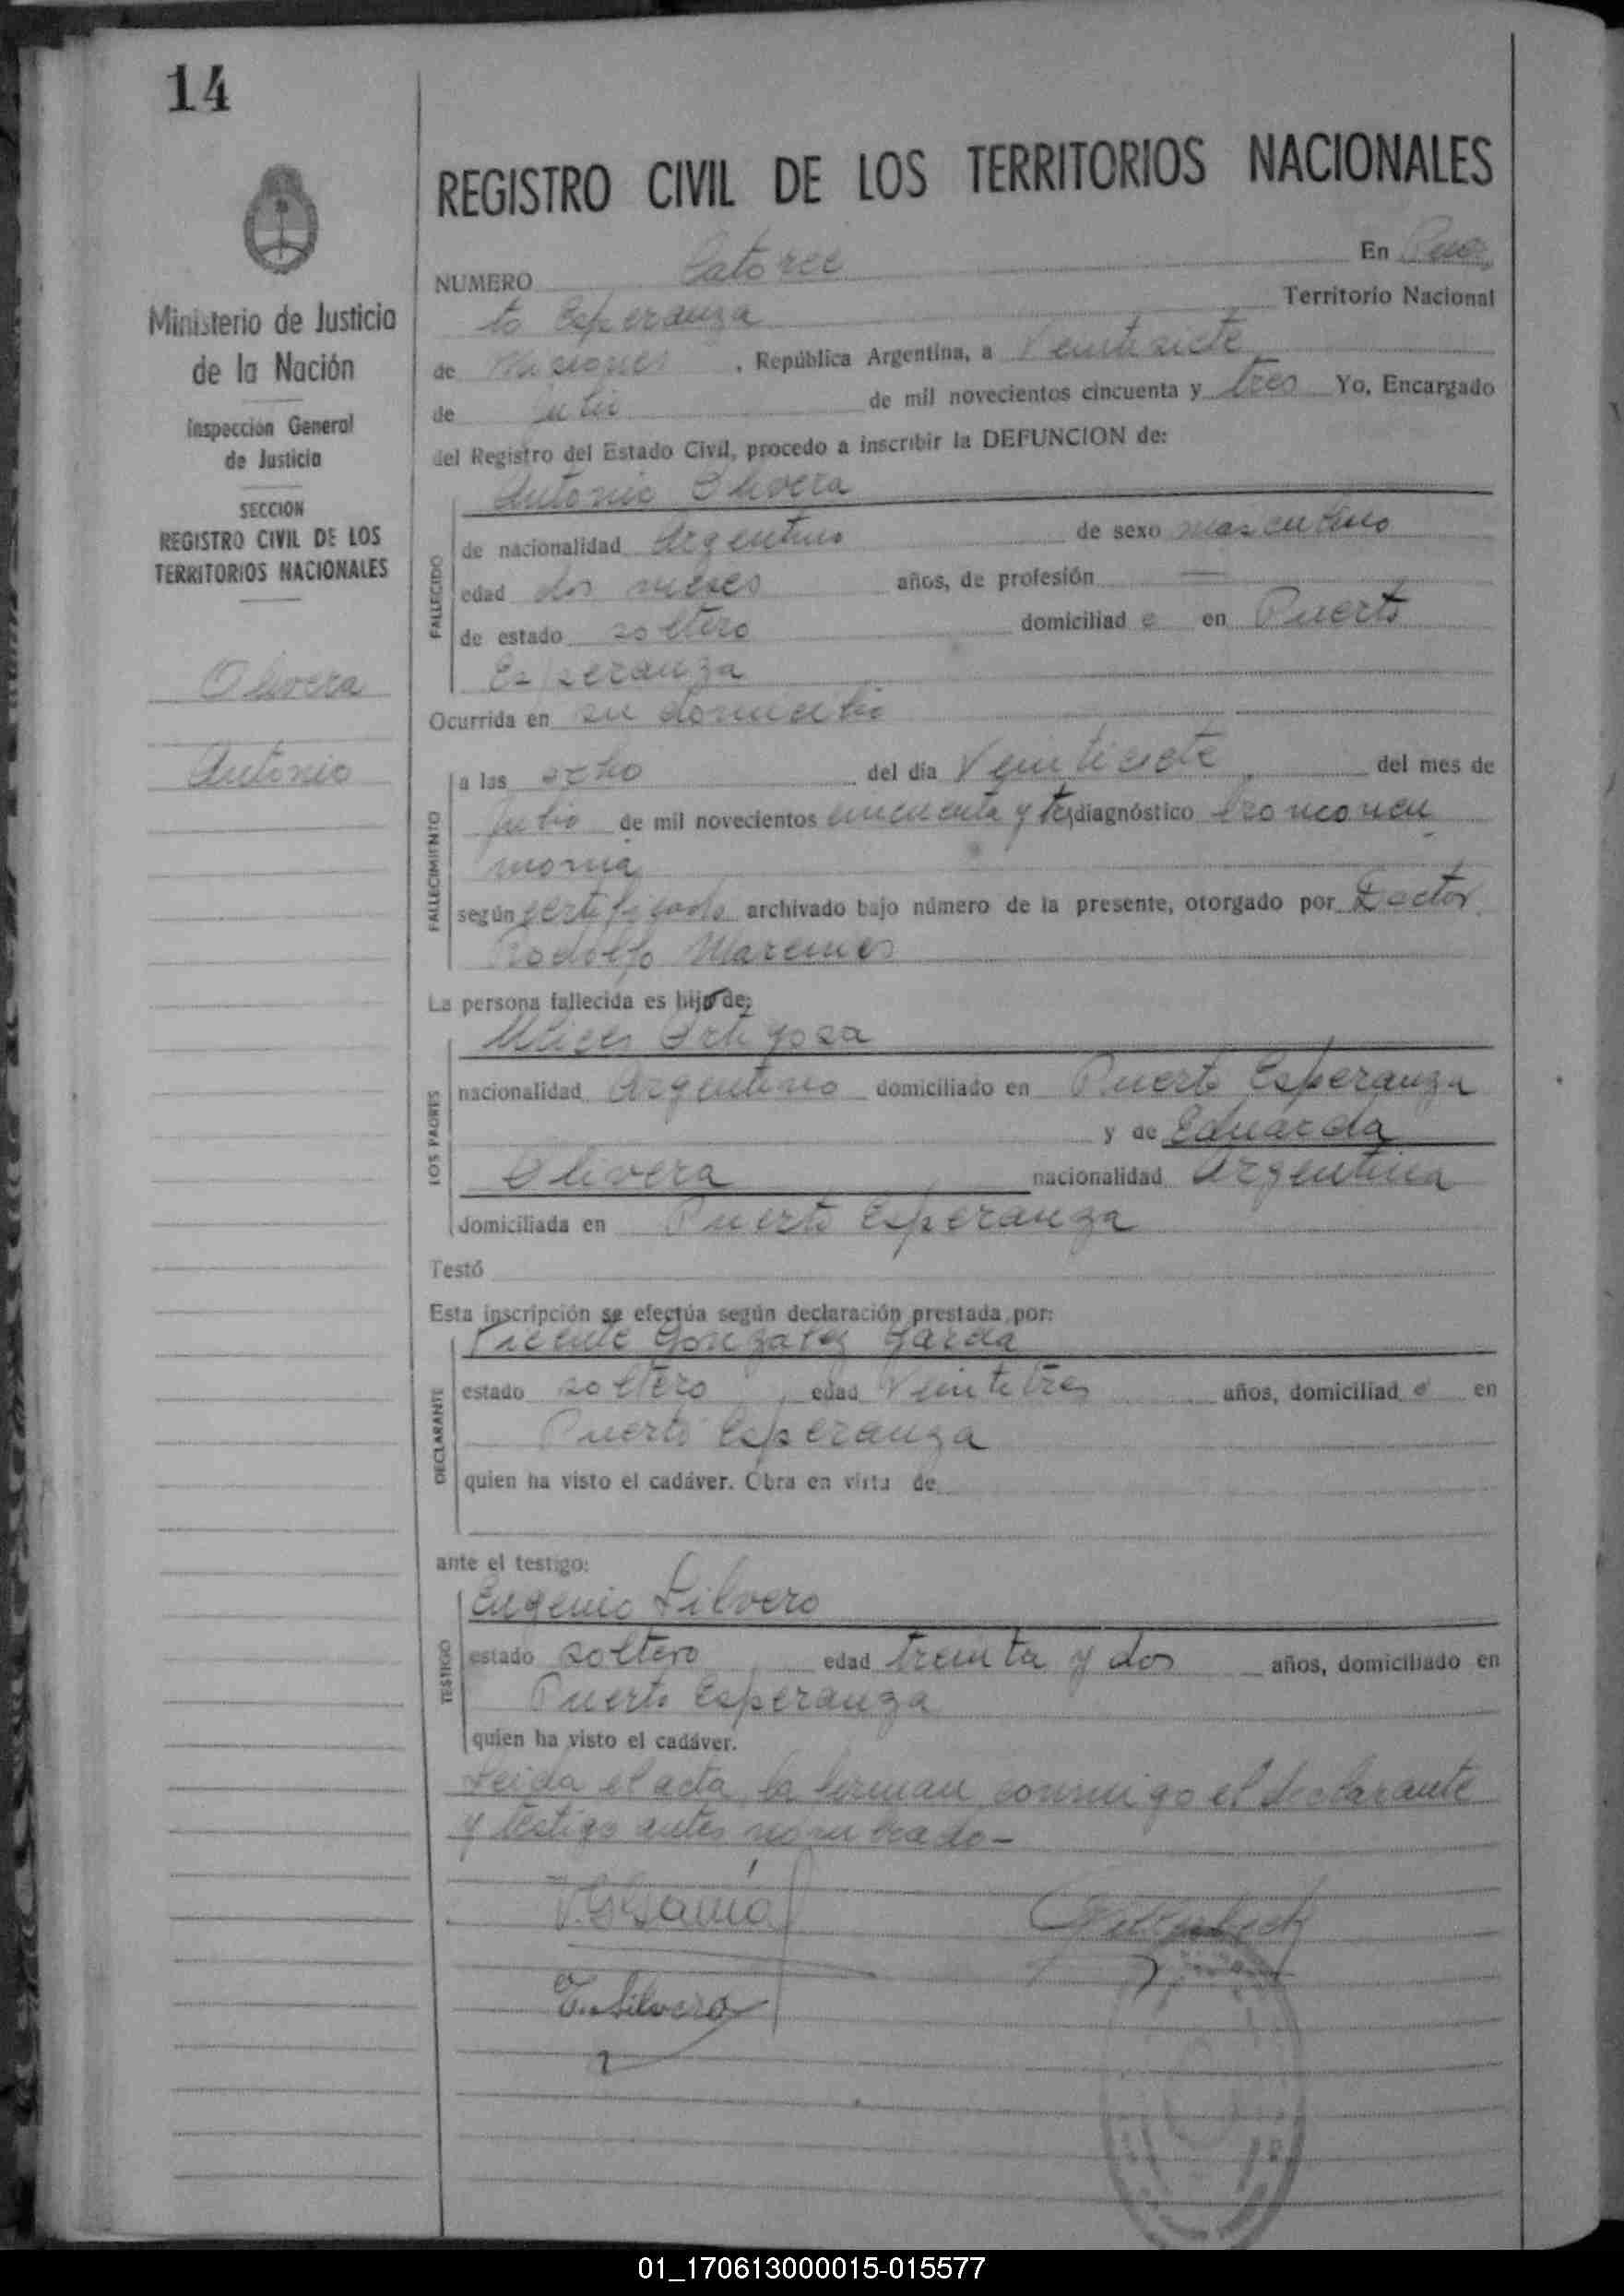 14
REGISTRO CIVIL DE LOS TERRITORIOS NACIONALES
NUMERO Catorce En Puer
to Esperanza Territorio Nacional
de Misiones, República Argentina, a Veintisiete
de Julio de mil novecientos cincuenta y tres Yo, Encargado
del Registro del Estado Civil, procedo a inscribir la DEFUNCION de:
Ministerio de Justicia
de la Nación
Inspección General
de Justicia
SECCION
REGISTRO CIVIL DE LOS
TERRITORIOS NACIONALES
Olivera
Antonio
FALLECIDO
Antonio Olivera
de nacionalidad Argentino de sexo masculino
edad dos meses años, de profesión —
de estado soltero domiciliad o en Puerto
Esperanza
Ocurrida en su domicilio
FALLECIMIENTO
a las ocho del día Veintisiete del mes de
Julio de mil novecientos cincuenta y tres diagnóstico bronconeu
monia
según certificado archivado bajo número de la presente, otorgado por Doctor
Rodolfo
La persona fallecida es hijo de:
LOS PADRES
Ulices Ortigoza
nacionalidad Argentino domiciliado en Puerto Esperanza
y de Eduarda
Olivera nacionalidad Argentina
domiciliada en Puerto Esperanza
Testó
Esta inscripción se efectúa según declaración prestada por:
DECLARANTE
Vicente Gonzalez Garcia
estado soltero edad Veintitres años, domiciliad o en
Puerto Esperanza
quien ha visto el cadáver. Obra en virtu de
ante el testigo:
TESTIGO
Eugenio Silvero
estado soltero edad treinta y dos años, domiciliado en
Puerto Esperanza
quien ha visto el cadáver.
Leida el acta, la firman conmigo el declarante
y testigo antes nombrado-
V. G. Garcia
E. Silvero
01_170613000015-015577